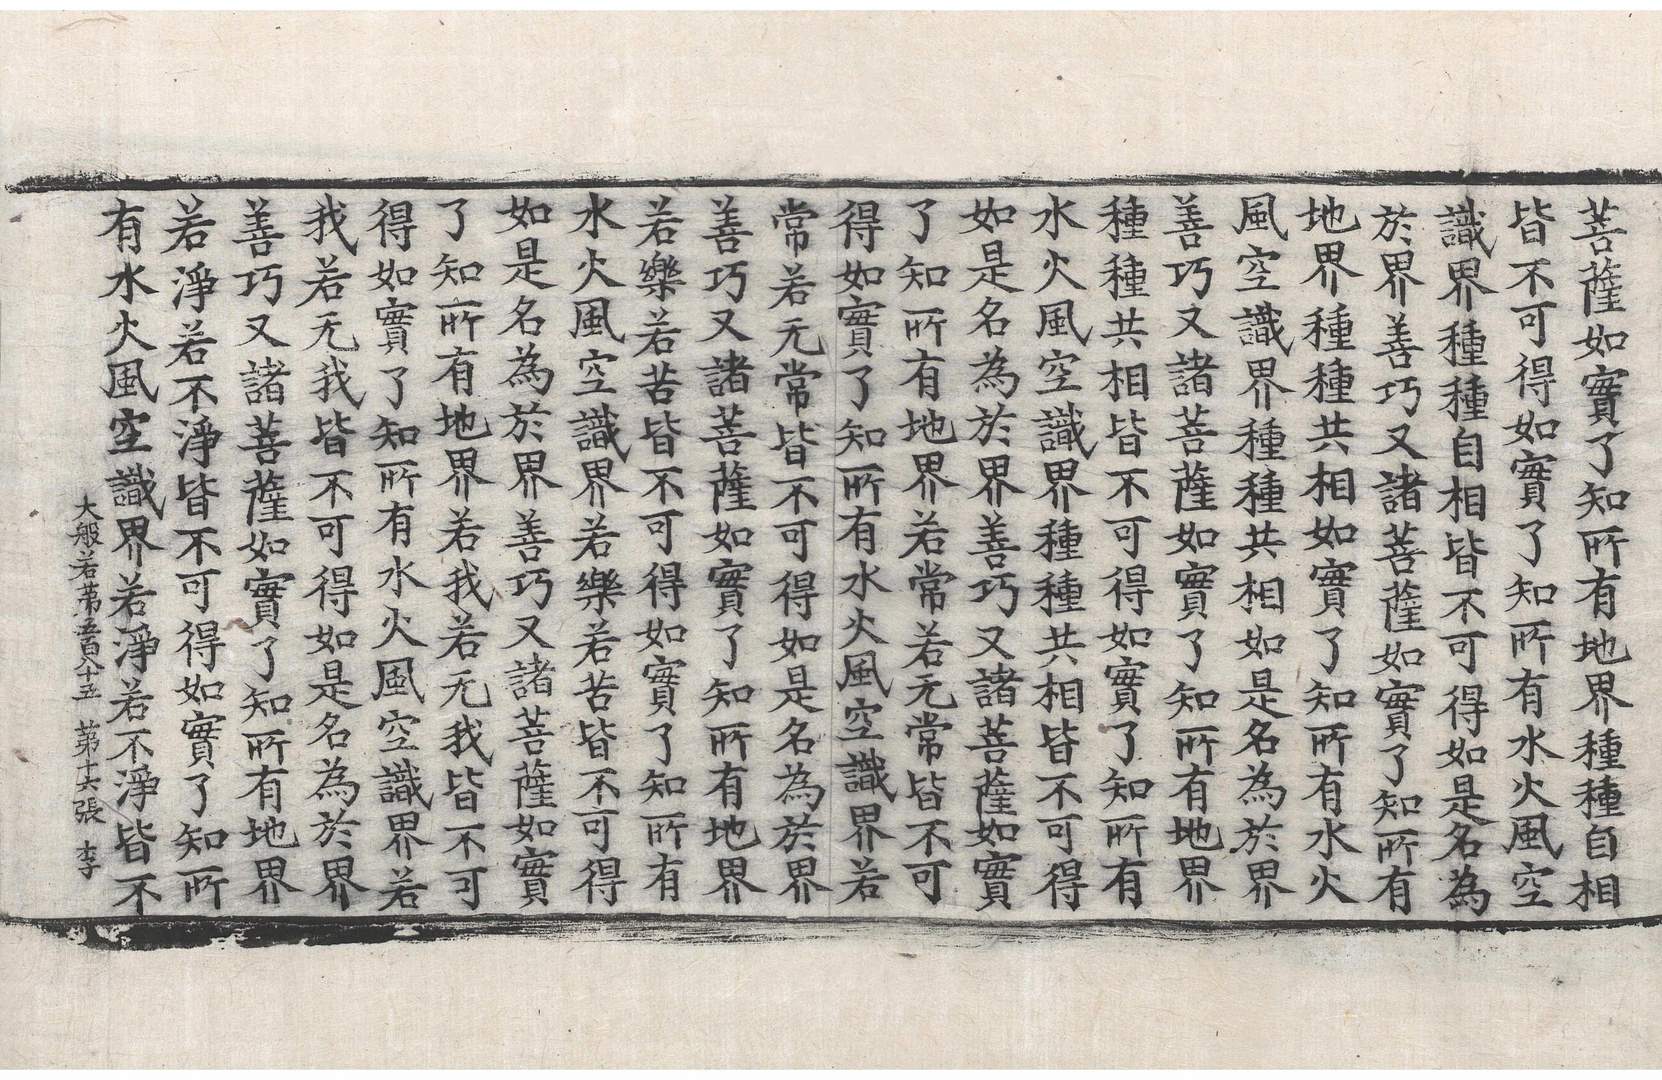 菩薩如實了知所有地界種種自相
皆不可得如實了知所有水火風空
識界種種自相皆不可得如是名為
於界善巧又諸菩薩如實了知所有
地界種種共相如實了知所有水火
風空識界種種共相如是名為於界
善巧又諸菩薩如實了知所有地界
種種共相皆不可得如實了知所有
水火風空識界種種共相皆不可得
如是名為於界善巧又諸菩薩如實
了知所有地界若常若无常皆不可
得如實了知所有水火風空識界若
常若无常皆不可得如是名為於界
善巧又諸菩薩如實了知所有地界
若樂若苦皆不可得如實了知所有
水火風空識界若樂若苦皆不可得
如是名為於界善巧又諸菩薩如實
了知所有地界若我若无我皆不可
得如實了知所有水火風空識界若
我若无我皆不可得如是名為於界
善巧又諸菩薩如實了知所有地界
若淨若不淨皆不可得如實了知所
有水火風空識界若淨若不淨皆不
大般若苐五百八十五 苐十六張 李